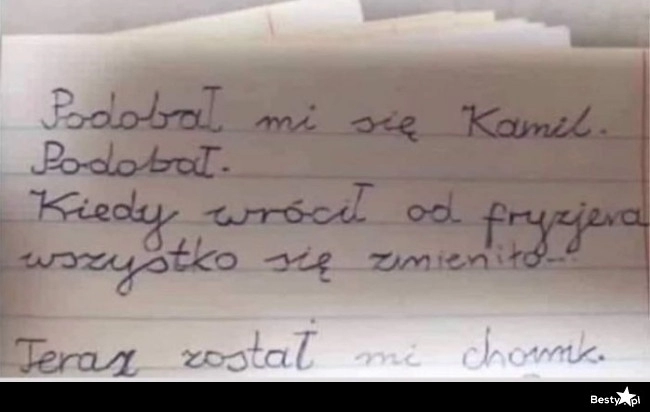 Podobał mi się Kamil.
Podobał.
Kiedy wrócił od fryzjera
wszystko się zmieniło...
Teraz został mi chomik.
Besty.pl